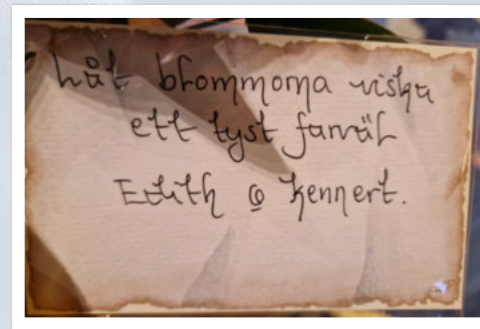 Låt blommorna viska
ett tyst farväl
Edith & Kennert.